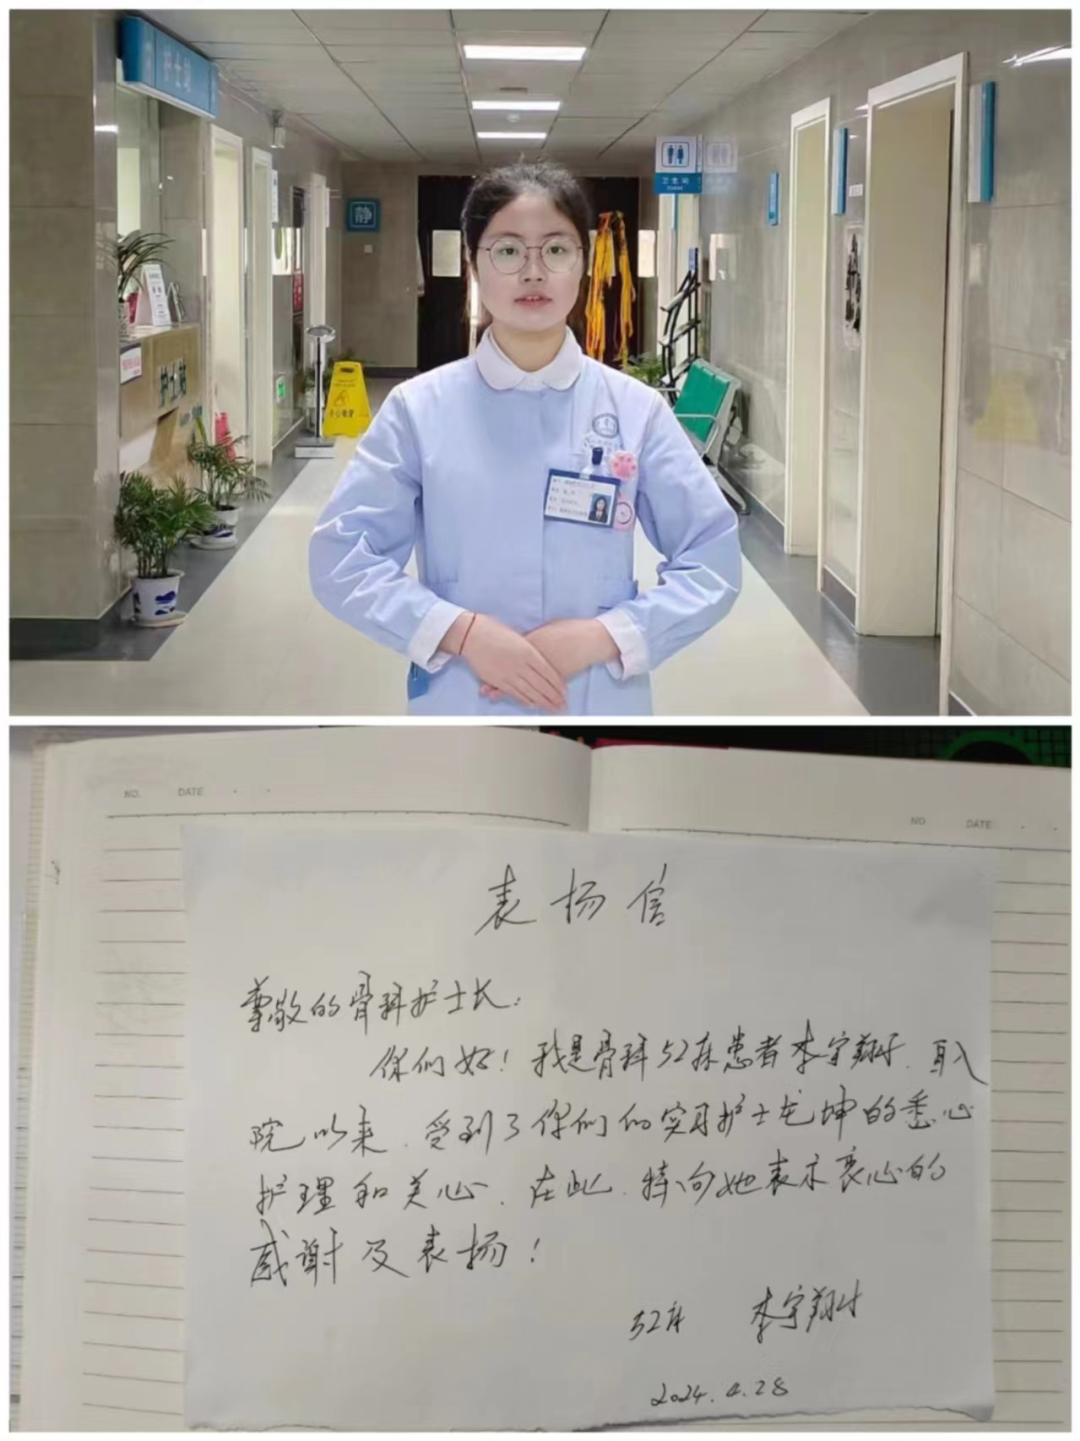 护士站
静
卫生间
护士站
小心地滑
NO.
DATE
NO
DATE
表扬信
尊敬的骨科护士长:
你们好!我是骨科52床患者李宇翔,自入
院以来,受到了你们的实习护士龙坤的悉心
护理和关心,在此,特向她表示衷心的
感谢及表扬!
52床 李宇翔
2024.4.28